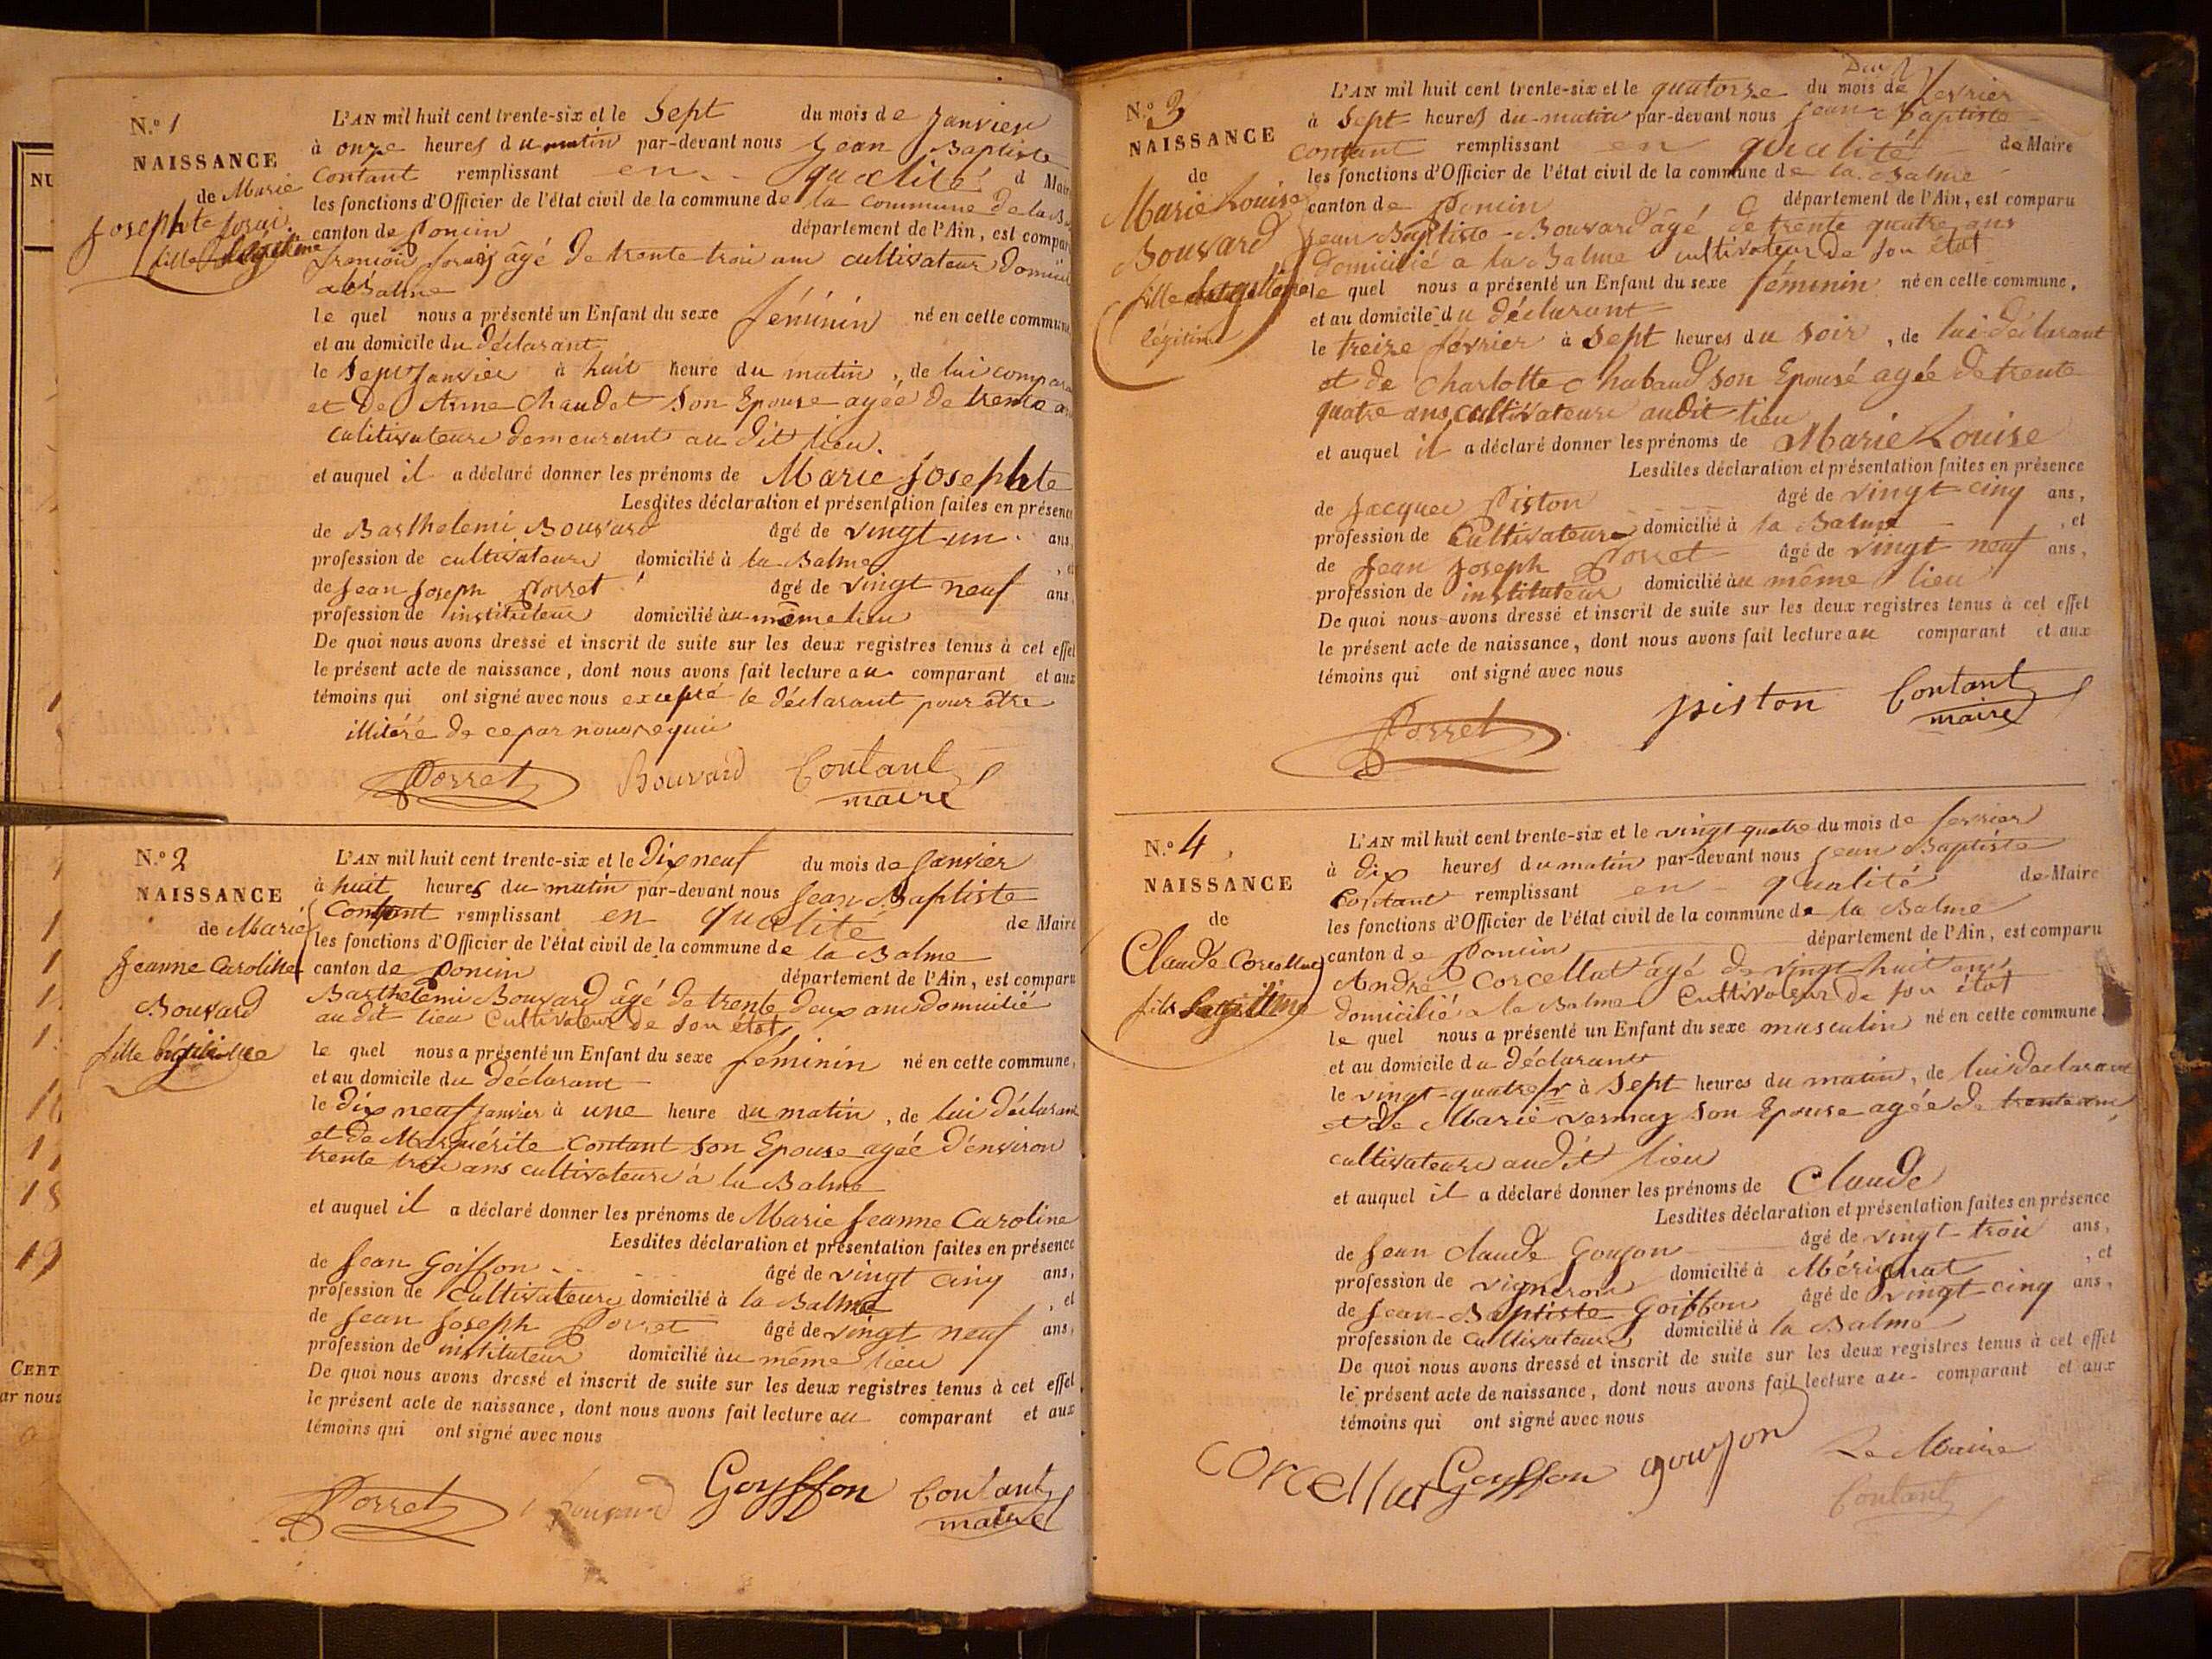 N.º 1
NAISSANCE
de Marie
Josephte
fille
L'AN mil huit cent trente-six et le Sept du mois de Janvier
à onze heures du matin par-devant nous Jean Baptiste
Contant remplissant en qualité d Mai
les fonctions d'Officier de l'état civil de la commune de la Commune de la B
canton de Poncin département de l'Ain, est compar
âgé de trente trois ans cultivateur domicil
a Balme
le quel nous a présenté un Enfant du sexe féminin né en cette commune
et au domicile du déclarant
le Sept Janvier à huit heure du matin, de lui compar
et de Anne Chaudet Son Epouse agée de trente
cultivateure demeurant au dit lieu.
et auquel il a déclaré donner les prénoms de Marie Josephte
Lesdites déclaration et présentation faites en présence
de Barthelemi Bouvard âgé de vingt-un ans,
profession de cultivateure domicilié à la Balme
de Jean Joseph Porret âgé de vingt neuf ans,
profession de instituteur domicilié au même lieu
De quoi nous avons dressé et inscrit de suite sur les deux registres tenus à cet effet
le présent acte de naissance, dont nous avons fait lecture au comparant et aux
témoins qui ont signé avec nous excepté le déclarant pour être
illitéré de ce par nous requis
Porret Bouvard Contant
maire
N.º 2
NAISSANCE
de Marie
Jeanne Caroline
Bouvard
fille
L'AN mil huit cent trente-six et le Dix neuf du mois de Janvier
à huit heures du matin par-devant nous Jean Baptiste
Contant remplissant en qualité de Maire
les fonctions d'Officier de l'état civil de la commune de la Balme
canton de Poncin département de l'Ain, est comparu
Barthelemi Bouvard âgé de trente deux ans domicilié
au dit lieu Cultivateur de son état
le quel nous a présenté un Enfant du sexe féminin né en cette commune,
et au domicile du Déclarant
le Dix neuf janvier à une heure du matin, de lui déclarant
et de Marguérite Contant son Epouse agée d'environ
trente trois ans cultivateure à la Balme
et auquel il a déclaré donner les prénoms de Marie Jeanne Caroline
Lesdites déclaration et présentation faites en présence
de Jean Goiffon âgé de vingt cinq ans,
profession de Cultivateure domicilié à la Balme, et
de Jean Joseph Porret âgé de vingt neuf ans,
profession de instituteur domicilié au même lieu
De quoi nous avons dressé et inscrit de suite sur les deux registres tenus à cet effet
le présent acte de naissance, dont nous avons fait lecture au comparant et aux
témoins qui ont signé avec nous
Porret Bouvard Goyffon Contant
maire
N.º 3
NAISSANCE
de
Marie Louise
Bouvard
fille
légitime
L'AN mil huit cent trente-six et le quatorze du mois de fevrier
à Sept heures du matin par-devant nous Jean Baptiste
Contant remplissant en qualité de Maire
les fonctions d'Officier de l'état civil de la commune de la Balme
canton de Poncin département de l'Ain, est comparu
Jean Baptiste Bouvard âgé de trente quatre ans
domicilié a la Balme cultivateur de son état
le quel nous a présenté un Enfant du sexe féminin né en cette commune,
et au domicile du déclarant
le treize février à Sept heures du soir, de lui déclarant
et de Charlotte Chabaud son Epousé agée de trente
quatre ans cultivateure audit lieu
et auquel il a déclaré donner les prénoms de Marie Louise
Lesdites déclaration et présentation faites en présence
de Jacques Piston âgé de vingt-cinq ans,
profession de Cultivateure domicilié à la Balme, et
de Jean Joseph Porret âgé de vingt neuf ans,
profession de instituteur domicilié au même lieu
De quoi nous avons dressé et inscrit de suite sur les deux registres tenus à cet effet
le présent acte de naissance, dont nous avons fait lecture au comparant et aux
témoins qui ont signé avec nous
Porret piston Contant
maire
N.º 4
NAISSANCE
de
Claude Corcellut
fils
L'AN mil huit cent trente-six et le vingt quatre du mois de fevrier
à dix heures du matin par-devant nous Jean Baptiste
Contant remplissant en qualité de Maire
les fonctions d'Officier de l'état civil de la commune de la Balme
canton de Poncin département de l'Ain, est comparu
André Corcellut âgé de vingt huit ans
domicilié a la Balme Cultivateur de son état
le quel nous a présenté un Enfant du sexe masculin né en cette commune
et au domicile du Déclarant
le vingt-quatre fr à Sept heures du matin, de lui déclarant
et de Marie vernay son Epouse agée de trente ans
cultivateure audit lieu
et auquel il a déclaré donner les prénoms de Claude
Lesdites déclaration et présentation faites en présence
de Jean claude Goujon âgé de vingt-trois ans,
profession de vigneron domicilié à Mérignat, et
de Jean-Baptiste Goiffon âgé de vingt cinq ans,
profession de cultivateure domicilié à la Balme
De quoi nous avons dressé et inscrit de suite sur les deux registres tenus à cet effet
le présent acte de naissance, dont nous avons fait lecture au comparant et aux
témoins qui ont signé avec nous
corcellut Goyffon goujon Le Maire
Contant